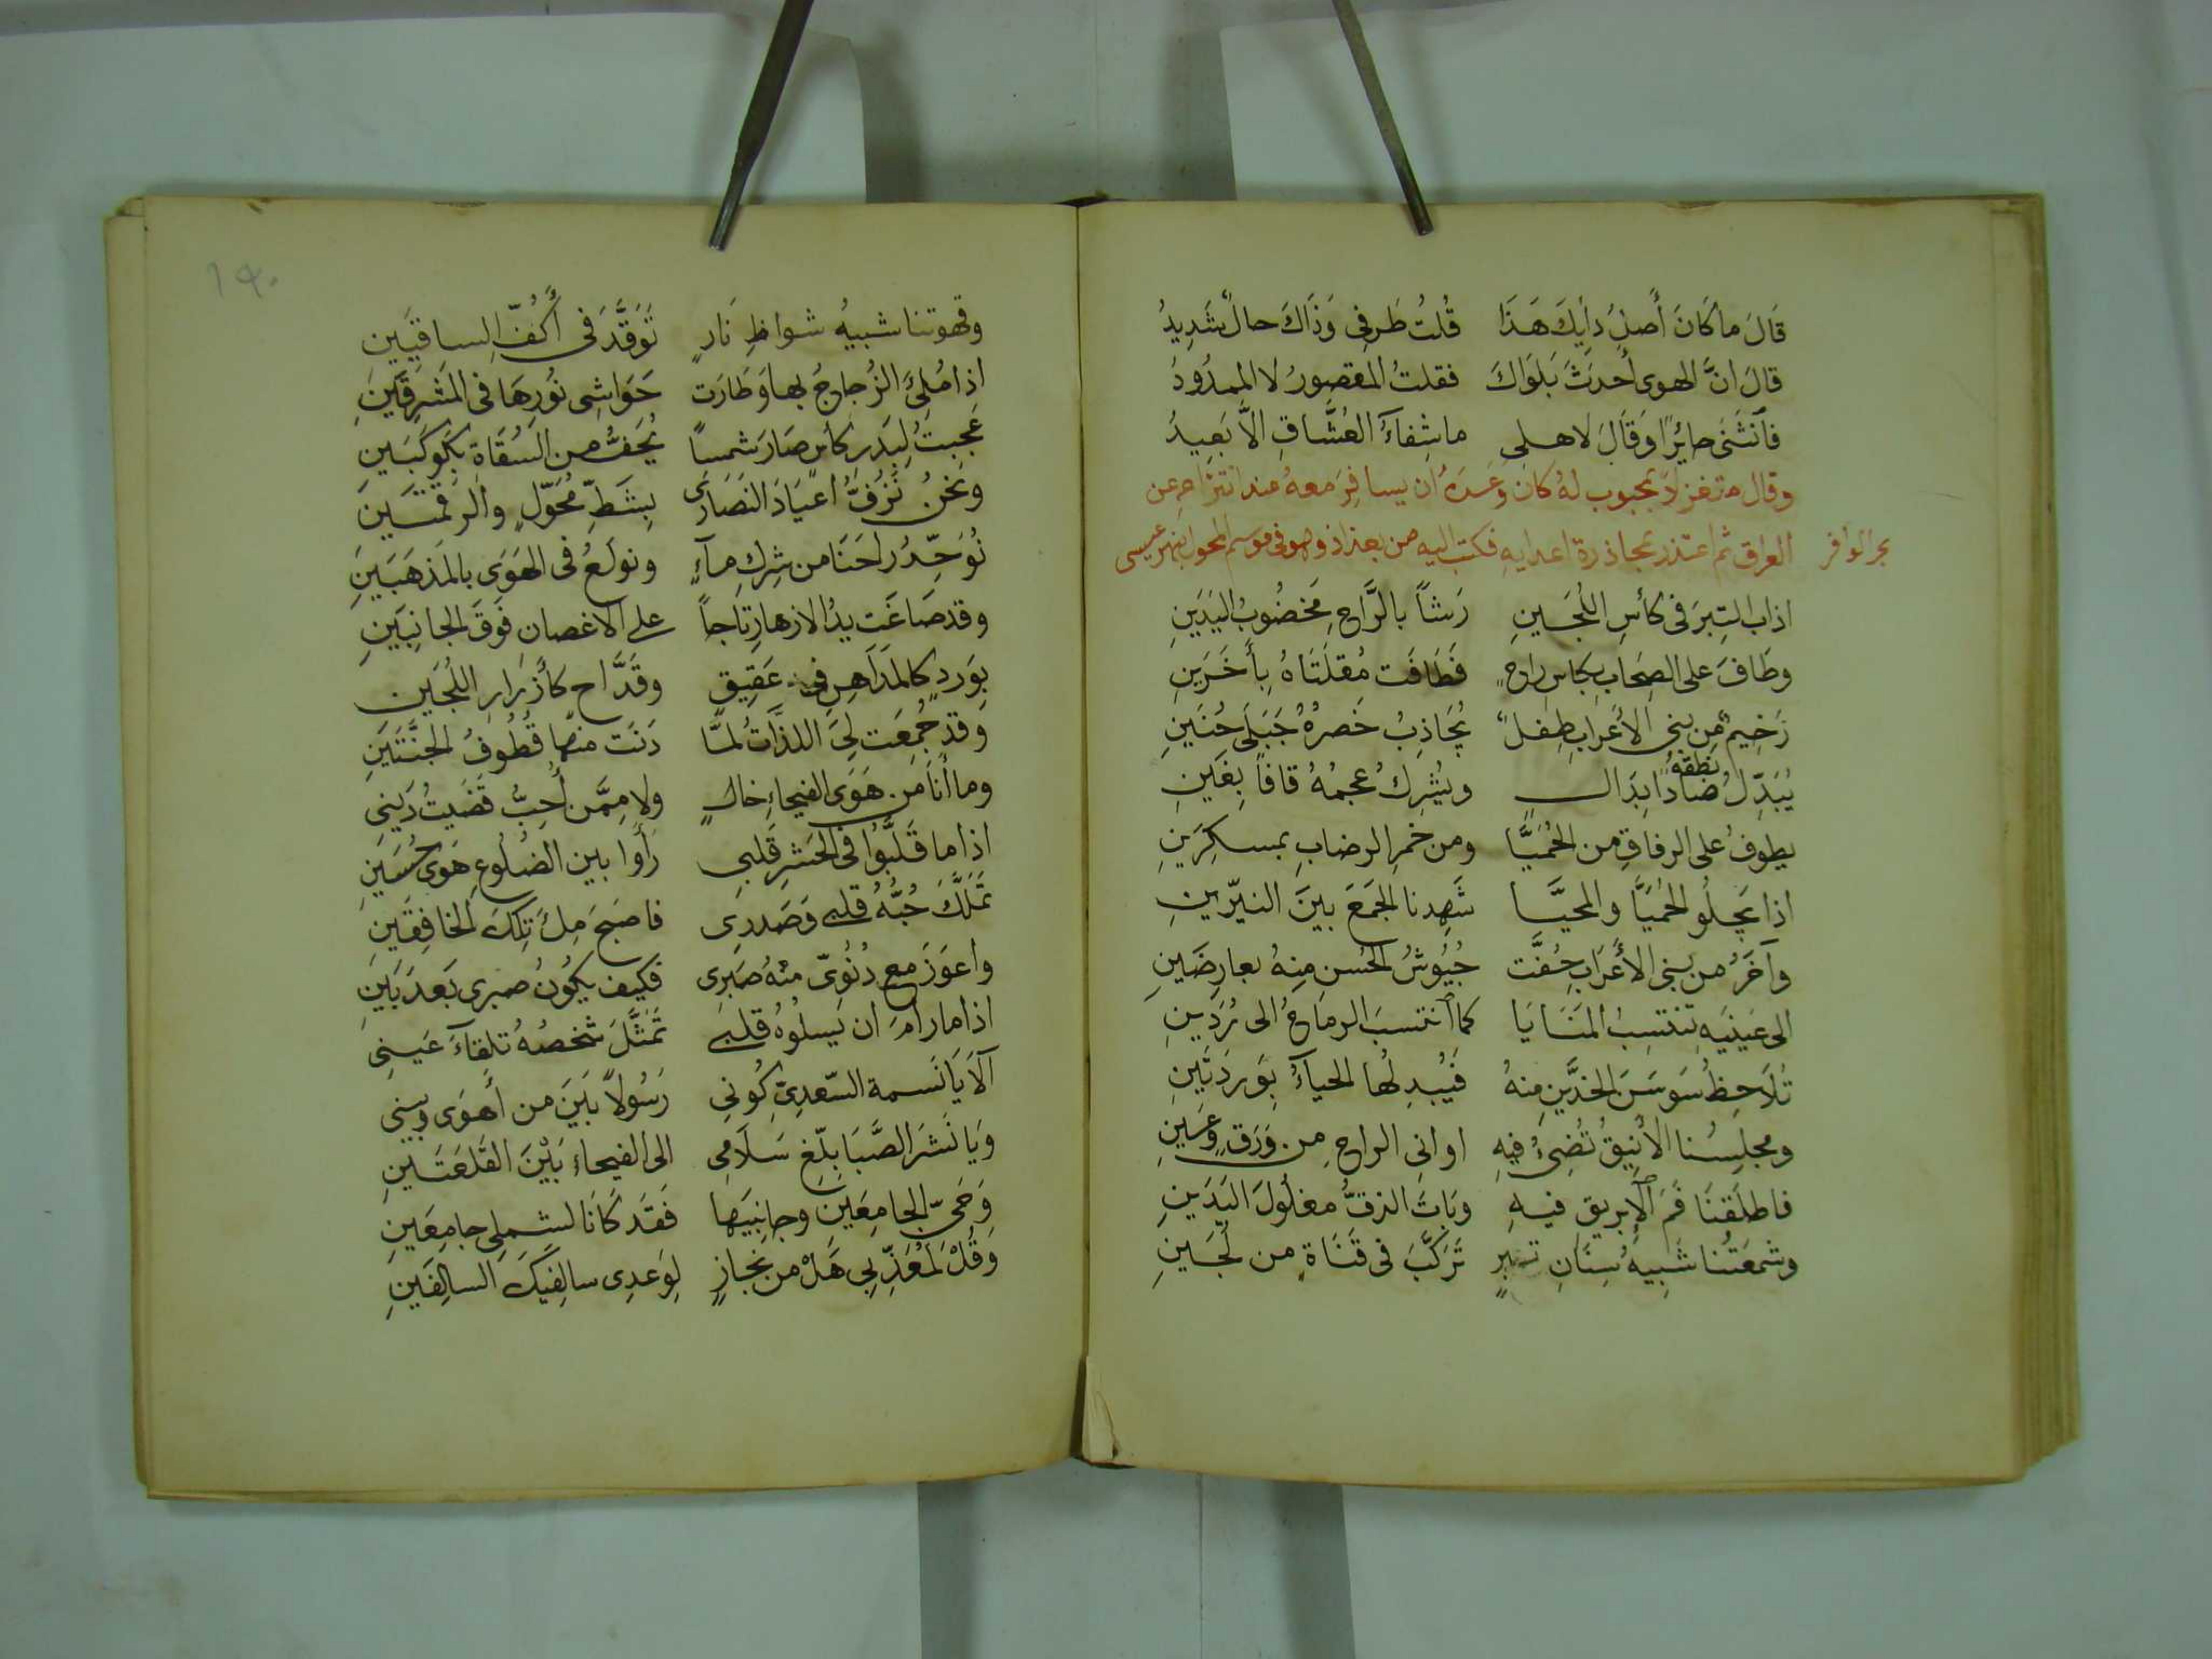 قَالَ ما كَانَ أَصلُ دَايِكَ هَذَا قُلتُ طَرفِى وَذَاكَ حالٌ شَدِيدُ
قالَ انَّ الهوى أَحدَثَ بَلوَاكَ فقلتُ المقصورُ لا الممدُودُ
فٱنثَنَى حايُرًا وَقَالَ لاهلِى ما شِفاءُ العُشَّاقِ الاَّ بَعِيدُ
وقال متغزلاً بمحبوب لهُ كان وعدهُ ان يسافرَ معهُ عند انتزاحِهِ عن
بحر الوافر
العراق ثم اعتذر بمحاذرة اعدايهِ فكتب اليهِ من بغداذ وهو فى موسم المحول بنهر عيسى
اذاب التِبرَ فى كأسِ اللُجَينِ رَشأً بالرَّاحِ مَخضُوبُ اليَدَينِ
وطَافَ على الصِحَابِ بِكاسِ راحٍ فَطَافَت مُقلَتَاهُ بِأَخَرَينِ
رَخِيمٌ مِن بنى الأَعرَابِ طِفلٌ يُجَاذِبُ خَصرُهُ جَبَلَى حُنَينِ
يُبَدِّلُ نطقهُ ضادًا بدَالٍ ويُشرِكُ عجمُهُ قافًا بِغَينِ
يطوفُ على الرفاقِ من الحُمَيَّا ومن خمرِ الرضابِ بمسكِرَينِ
اذا يَجلُو الحُمَيَّا والمحيَّا شَهِدنا الجَمعَ بينَ النيّرينِ
وآخَرُ من بنى الأَعرَابِ حُفَّت جُيُوشُ الحُسنِ مِنهُ بعارِضَينِ
الى عَينَيهِ تنتسِبُ المَنَايَا كما ٱنتسبَ الرماحُ الى رُدَينِ
تُلاَحِظُ سَوسَنَ الخدَّينِ منهُ فيُبدِلُها الحياءُ بِوَردَتَينِ
ومجلِسُنا الأَنِيقُ تُضِىُ فيهِ اوانى الراحِ مِن وَرَقٍ وَعَينِ
فاطلَقنَا فَمَ الإبرِيقِ فيهِ وبَاتَ الزقُّ مغلُولَ اليَدَينِ
وشمعَتُنا شَبيهُ سِنَانِ تبرٍ تَرَكَّبَ فى قَنَاةٍ من لُجَينِ
١٩٠
وقهوتنا شبيهُ شواظِ نَارٍ تَوَقَّدَ فى أَكُفِّ الساقِيَينِ
اذا مُلِئَ الزُجاجُ بها وَطَارَت حَوَاشِى نُورِهَا فى المَشرِقَينِ
عَجِبتُ لِبَدرِ كأسٍ صَارَ شمساً يُحَفُّ من السُقَاةِ بكَوكَبَينِ
ونحنُ نَزُفُّ اعيَادَ النَصَارَى بِشَطِّ مُحَوَّلٍ والرقمتَينِ
نُوَحِّدُ راحَنَا من شِركِ مآءٍ ونولَعُ فى الهَوَى بالمَذهَبَينِ
وقد صَاغَت يدُ الازهارِ تاجاً على الاغصانِ فَوقَ الجانِبَينِ
بِوَردٍ كالمَدَاهِنِ فى عَقِيقٍ وقَدَّاحٍ كأَزرَارِ اللُجَينِ
وقد جُمِعَت لِىَ اللذَّاتُ لمَّا دَنَت منها قُطُوفُ الجَنَّتَينِ
وما أَنا من هَوَى الفيحاءِ خالٍ ولا مِمَّن أُحِبُّ قَضَيتُ دَينِى
اذا ما قَلَّبُوا فى الحَشرِ قَلبِى رَأَوا بين الضُلُوعِ هَوَى حُسَينِ
تَمَلَّكَ حُبُّهُ قلبى وَصَدرِى فاصبَحَ مِلءَ تِلكَ الخافِقَينِ
واعوَزَ مع دُنُوِىّ منْهُ صَبرِى فكيف يكُونُ صبرى بَعدَ بَينِ
اذا ما رامَ ان يَسلُوهُ قلبى تَمَثَّلَ شخصُهُ تلقآءَ عَينِى
أَلاَ يَا نَسمة السّعدِىّ كُونِى رَسُولاً بَينَ من أَهوَى وبينى
وَيَا نَشرَ الصَّبَا بلِّغ سَلاَمِى الى الفيحاءِ بَيْنَ القَلعَتَينِ
وَحَىّ الجامِعَينِ وجانِبَيهَا فَقَد كَانَا لشملِى جامِعَينِ
وَقُلْ لمُعَذِّبِى هَلْ من نجَازٍ لِوَعدِى سالِفِيكَ السالِفَينِ